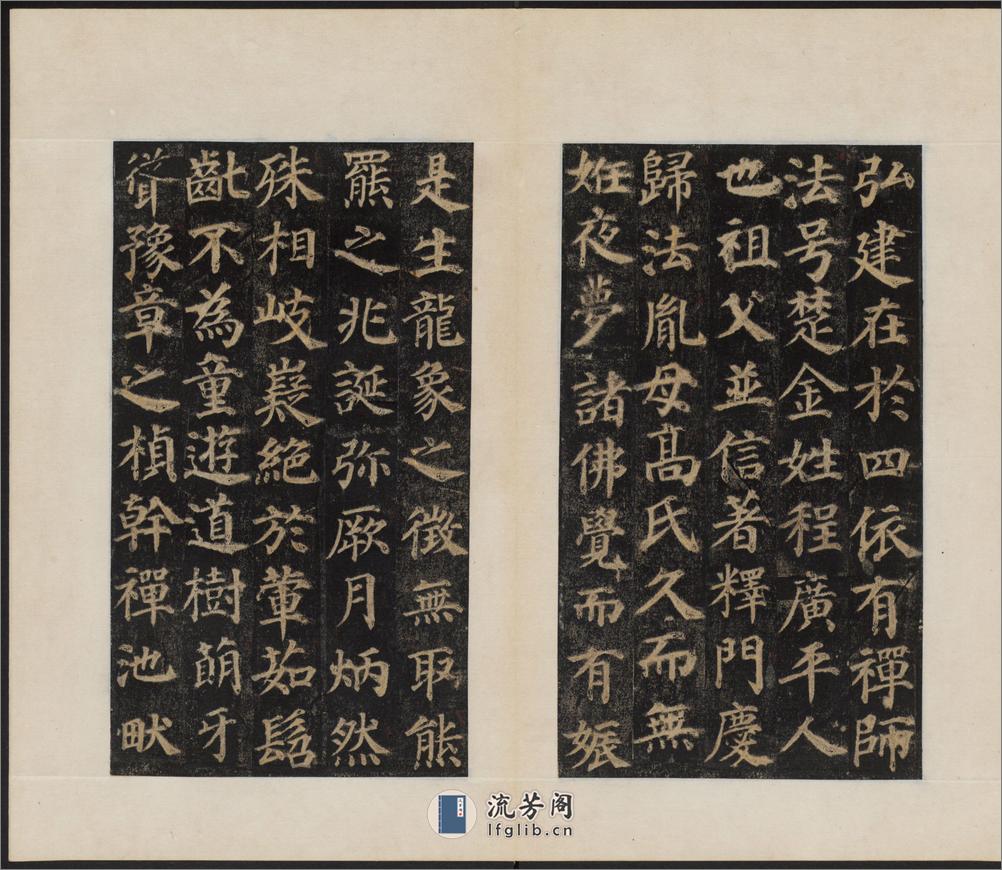 弘建在於四依有禪師
法号楚金姓程廣平人
也祖父並信著釋門慶
歸法胤母高氏久而無
姙夜夢諸佛覺而有娠
是生龍象之徵無取熊
羆之兆誕弥厥月炳然
殊相岐嶷絕於葷茹髫
齔不為童遊道樹萠牙
聳豫章之楨幹禪池畎
流芳阁
lfglib.cn